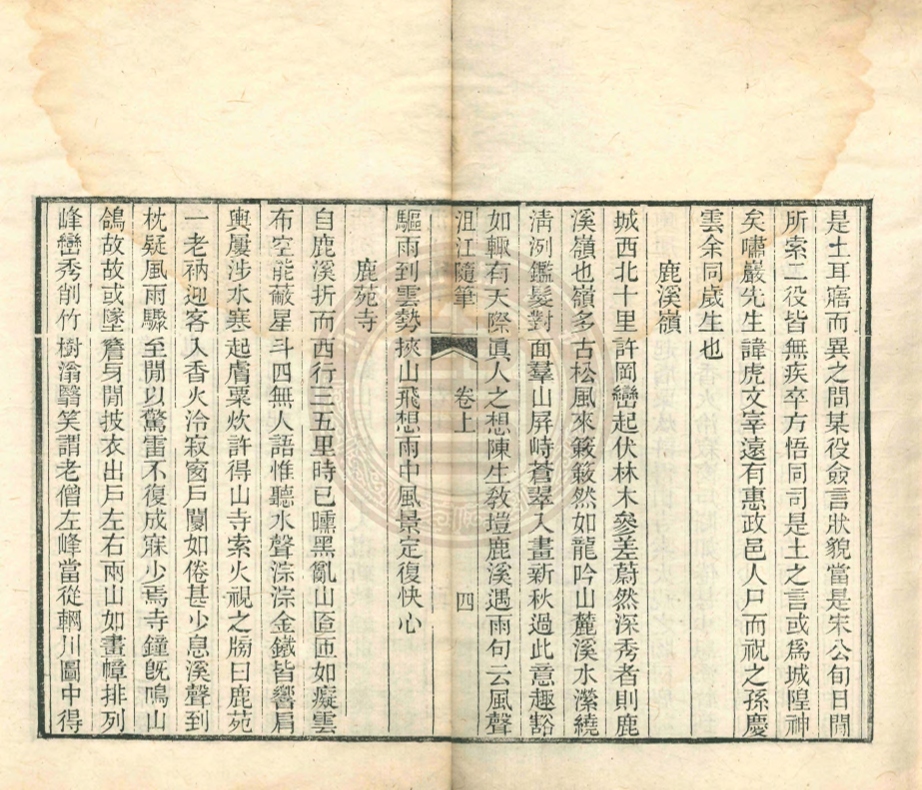 是土耳寤而異之問某役僉言狀貌當是宋公旬日閒
所索二役皆無疾卒方悟同司是土之言或爲城隍神
矣嘯巖先生諱虎文宰遠有惠政邑人尸而祝之孫慶
雲余同歲生也
鹿溪嶺
城西北十里許岡巒起伏林木參差蔚然深秀者則鹿
溪嶺也嶺多古松風來簌簌然如龍吟山麓溪水瀠繞
淸洌鑑髮對面羣山屏峙蒼翠入畫新秋過此意趣豁
如輒有天際眞人之想陳生敎塏鹿溪遇雨句云風聲
沮江隨筆 卷上 四
驅雨到雲勢挾山飛想雨中風景定復快心
鹿苑寺
自鹿溪折而西行三五里時已曛黑亂山匼匝如癡雲
布空能蔽星斗四無人語惟聽水聲淙淙金鐵皆響肩
輿屢涉水寒起膚粟炊許得山寺索火視之牓曰鹿苑
一老衲迎客入香火冷寂窗戶闃如倦甚少息溪聲到
枕疑風雨驟至閒以驚雷不復成寐少焉寺鐘旣鳴山
鴿故故或墜簷身閒披衣出戶左右兩山如畫幛排列
峰巒秀削竹樹滃翳笑謂老僧左峰當從輞川圖中得